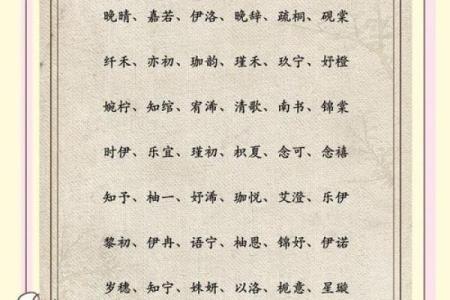 晚晴、嘉若、伊洛、晚辞、疏桐、砚棠
纤禾、亦初、珈韵、瑾禾、玖宁、妤橙
婉柠、知绾、宥浠、清歌、南书、锦棠
时伊、乐宜、瑾初、枳夏、念可、念禧
知予、柚一、妤浠、珈悦、艾澄、乐伊
黎初、伊冉、语宁、柚恩、锦妤、伊诺
岁穗、知宁、姝妍、以洛、栀意、星璇